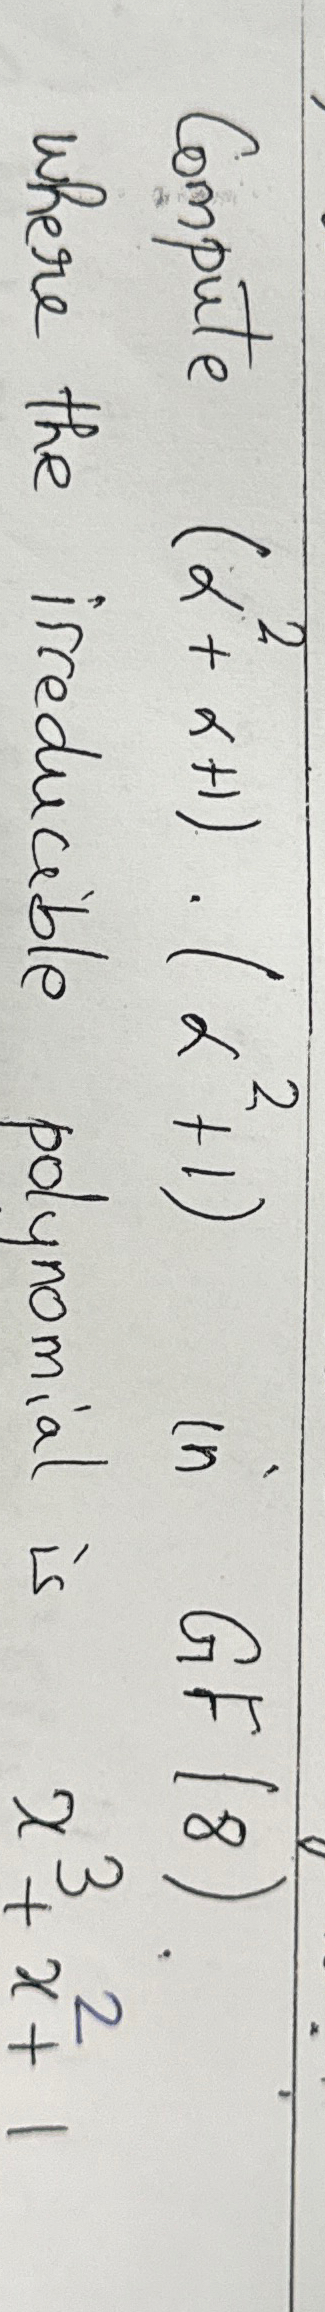 Compute (α² + α+1) . (α² + 1) in GF(8).
where the irreducible polynomial is x³ + x² + 1